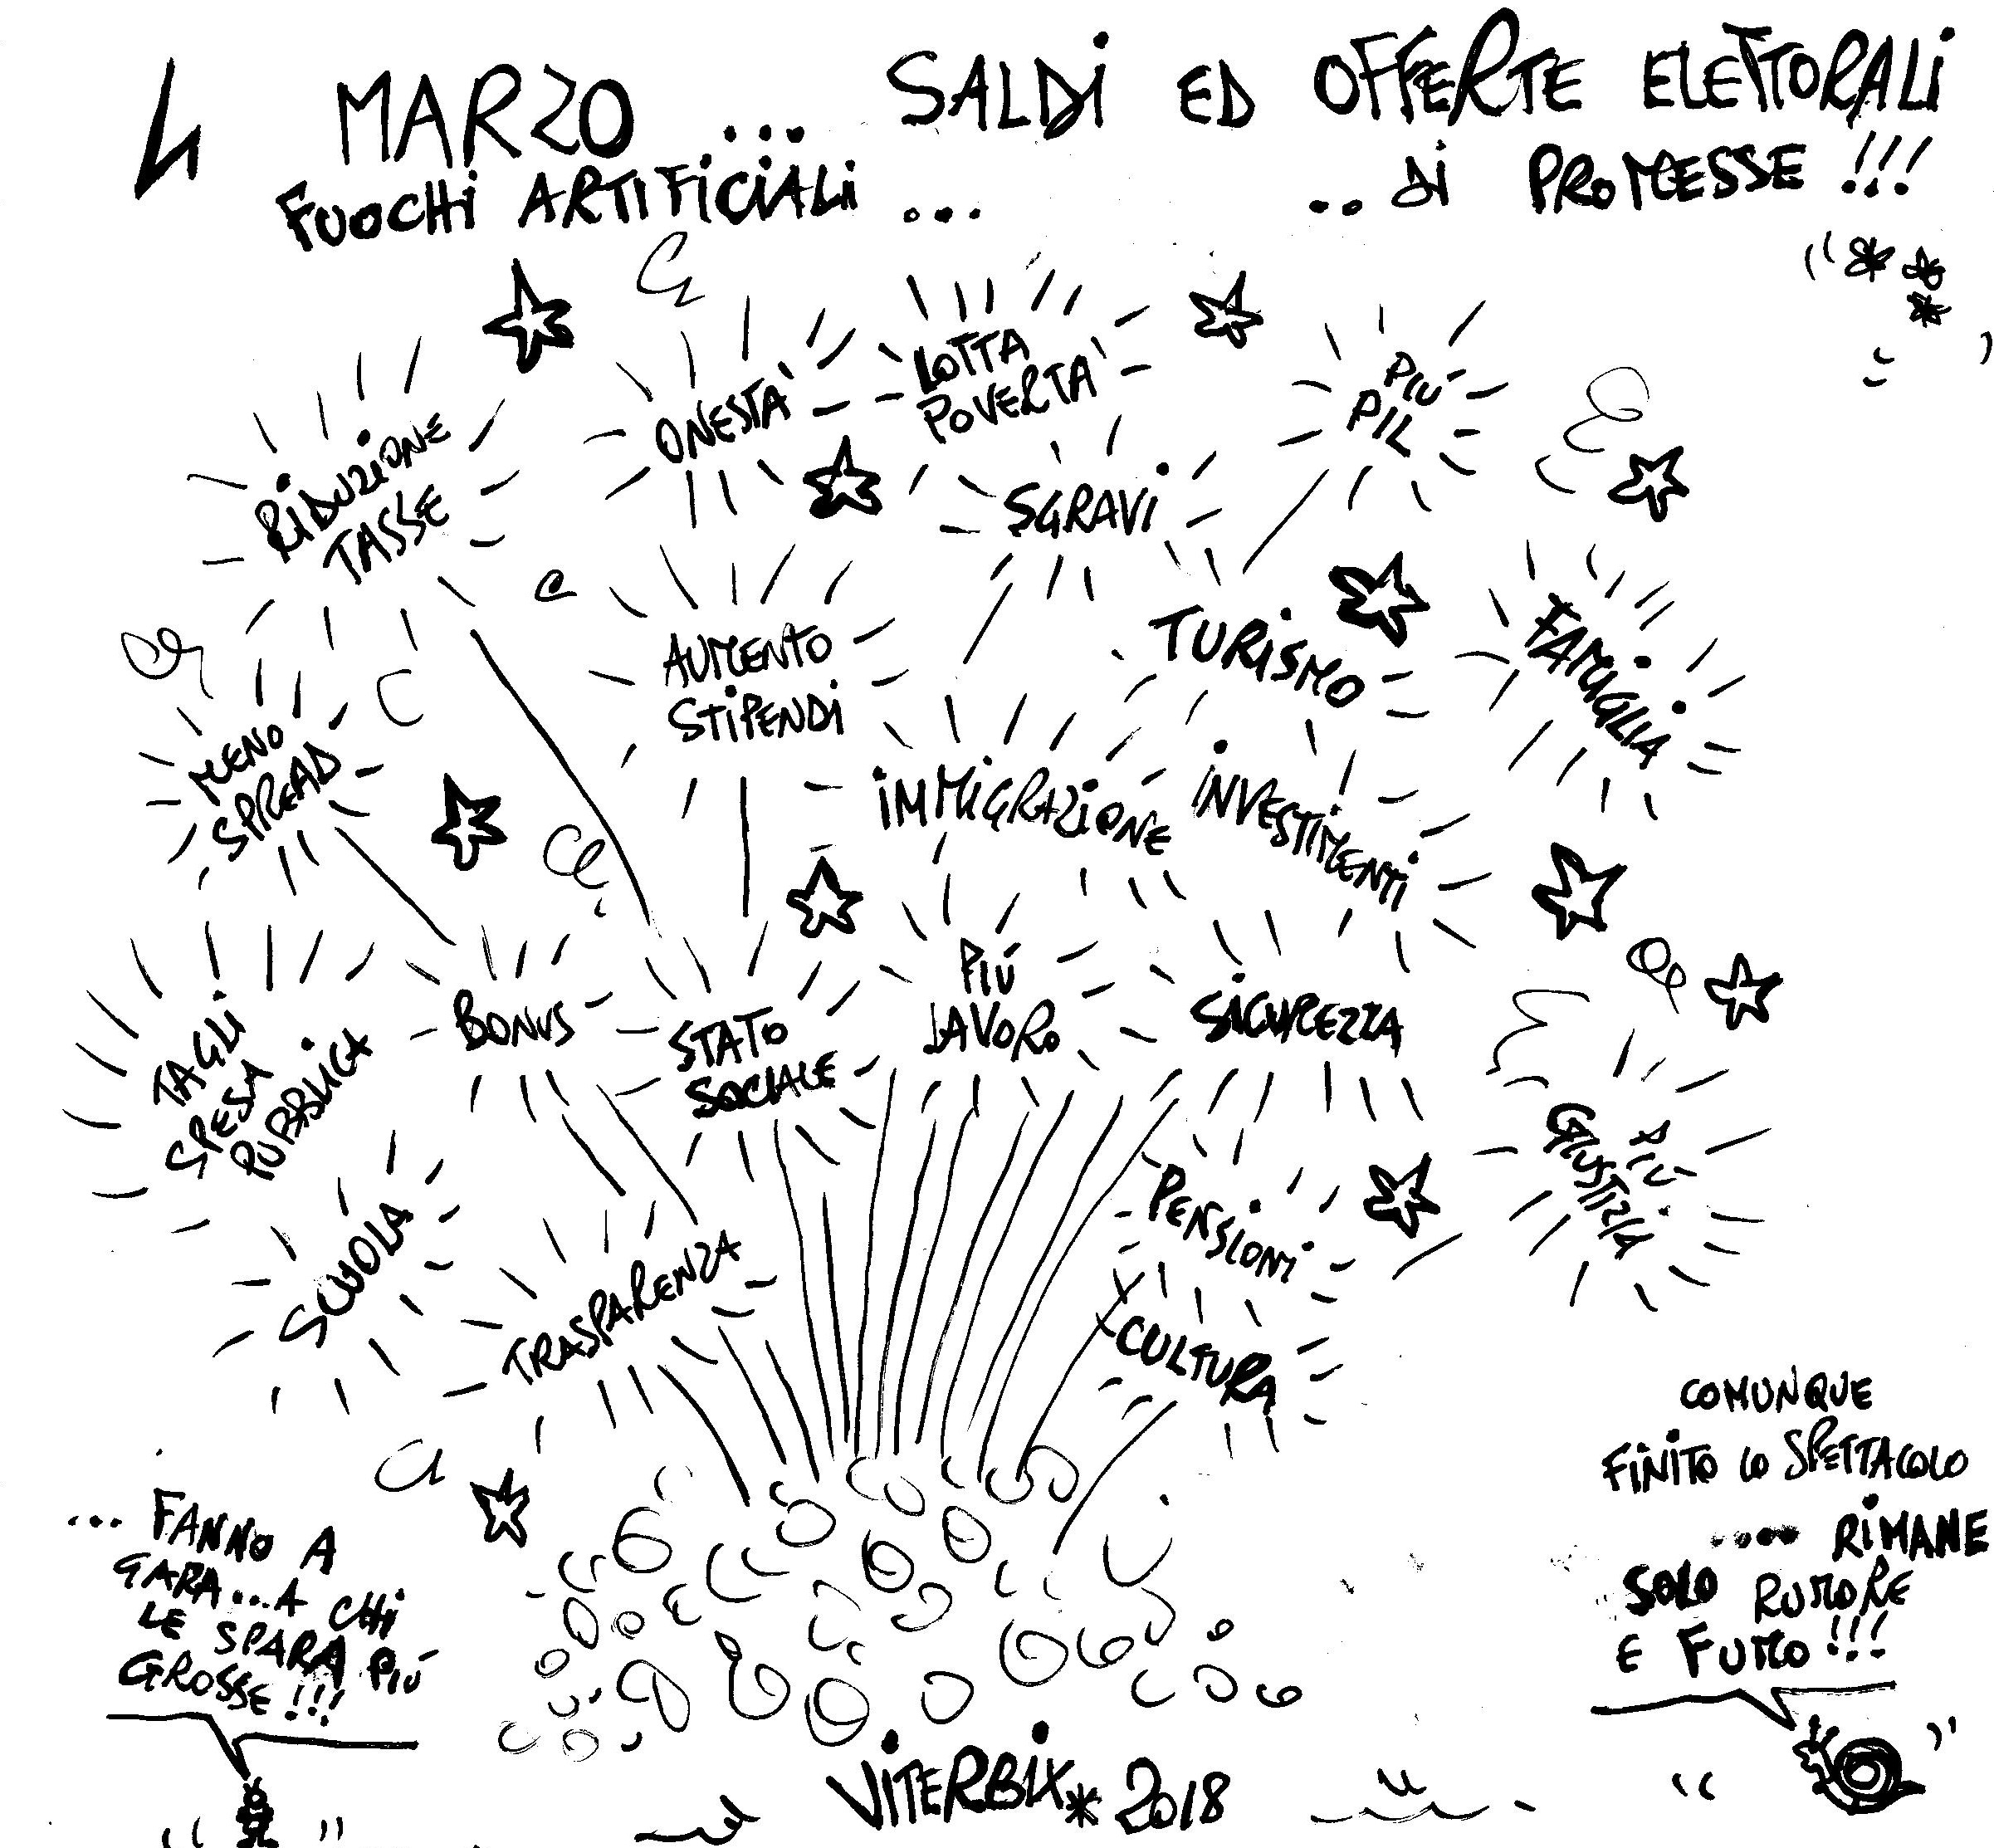 4 MARZO ... SALDI ED OFFERTE ELETTORALI
FUOCHI ARTIFICIALI ... ..DI PROMESSE !!!
RIDUZIONE
TASSE
ONESTA'
LOTTA
POVERTA'
PIÚ
PIL
SGRAVI
AUMENTO
STIPENDI
TURISMO
FAMIGLIA
MENO
SPREAD
IMMIGRAZIONE
INVESTIMENTI
TAGLI
SPESA
PUBBLICA
BONUS
STATO
SOCIALE
PIÚ
LAVORO
SICUREZZA
PIÚ
GIUSTIZIA
SCUOLA
TRASPARENZA
PENSIONI
CULTURA
... FANNO A
GARA...A CHI
LE SPARA PIÚ
GROSSE!!!
COMUNQUE
FINITO LO SPETTACOLO
.... RIMANE
SOLO RUMORE
E FUMO!!!
VITERBIX* 2018